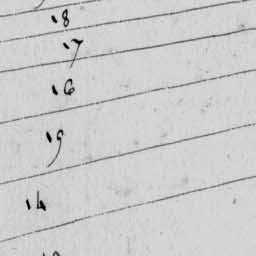 18
17
16
19
14